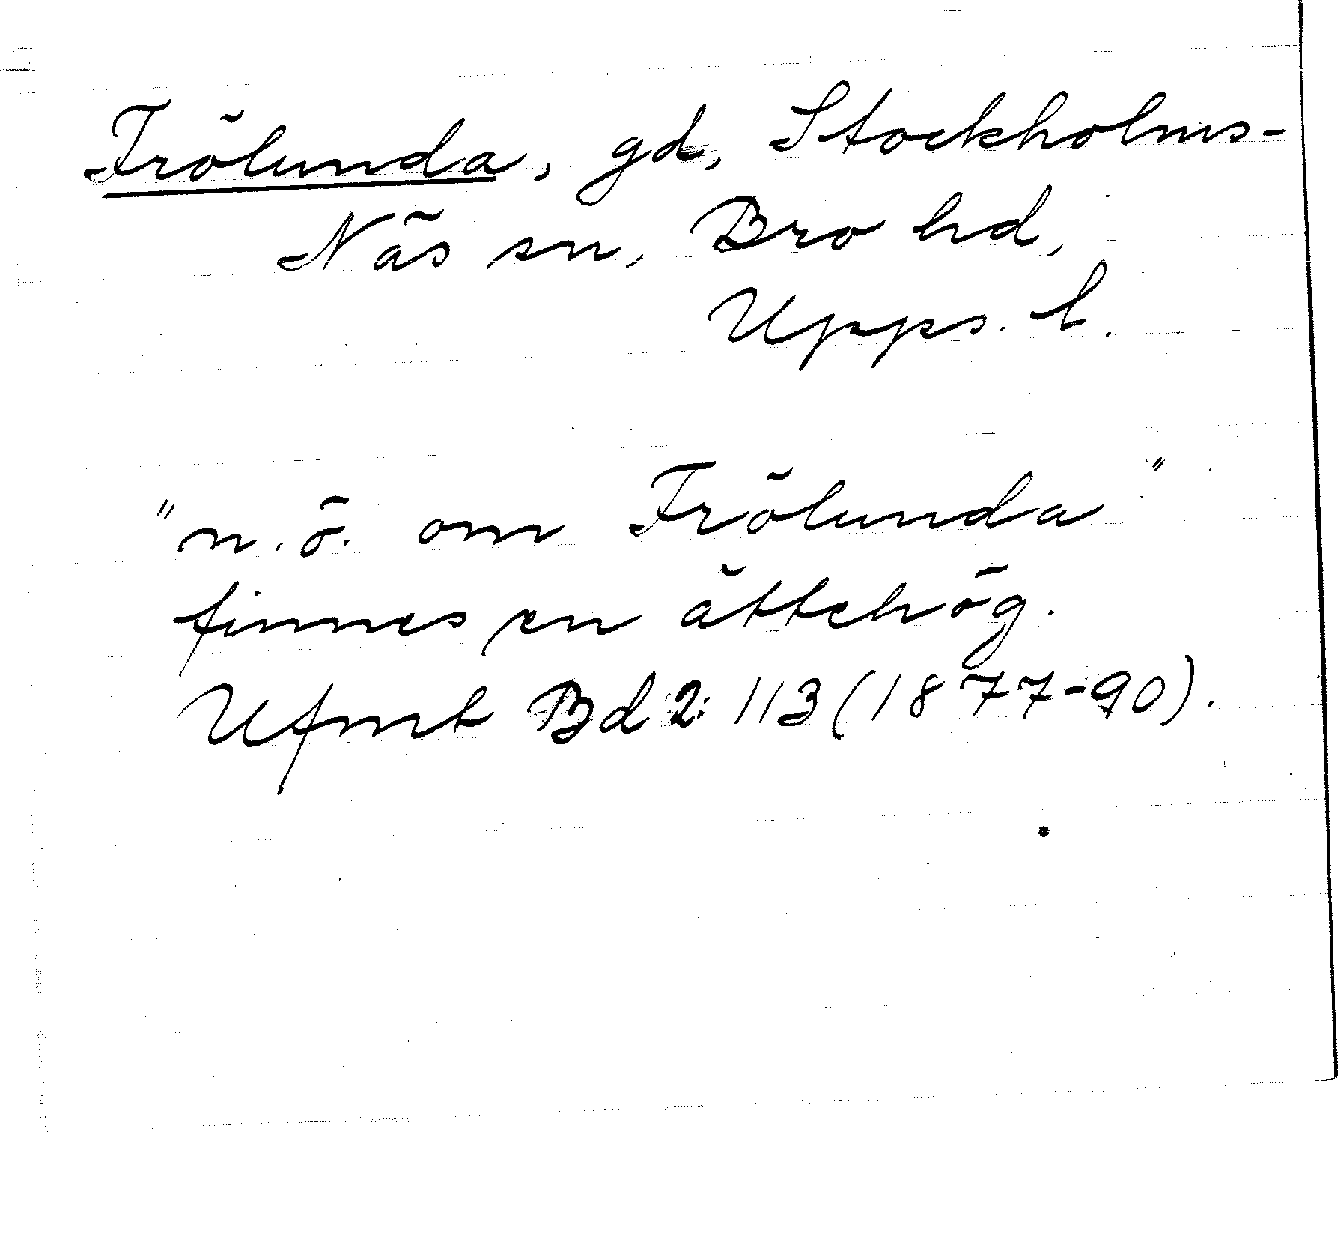 Frölunda, gd, Stockholms-
Näs sn, Bro hd,
Upps. l.
"n.ö. om Frölunda"
finnes en ättehög.
Ufmt Bd 2: 113 (1877-90).